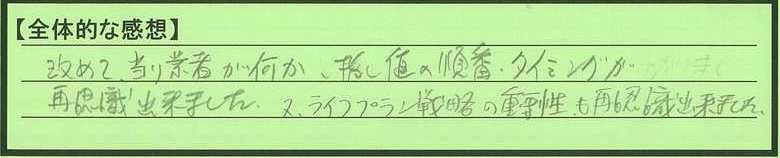 【全体的な感想】
改めて、当り業者が何か、指し値の順番・タイミングが
再認識出来ました。又、ライフプラン戦略の重要性も再認識出来ました。